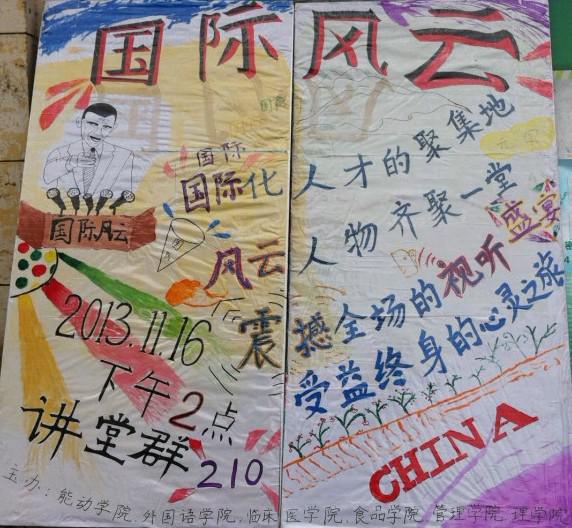 国际风云
国际
国际化人才的聚集地
国际风云
风云人物齐聚一堂
震撼全场的视听盛宴
受益终身的心灵之旅
2013.11.16
下午2点
讲堂群210
CHINA
主办:能动学院.外国语学院.临床医学院.食品学院.管理学院.理学院.